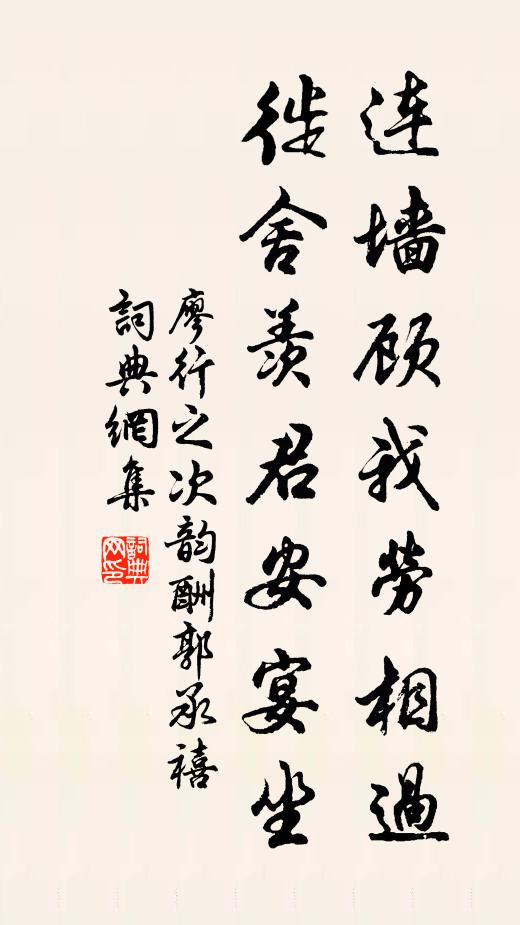 连墙顾我劳相過
徙舍羨君安宴坐
廖行之次韵酬郭承禧
詞典網集
詞典网印